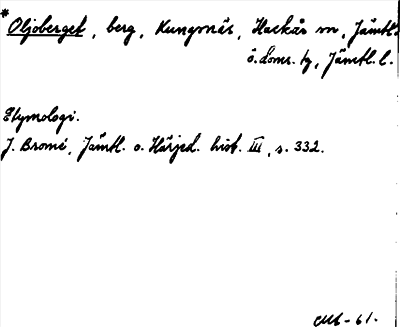 * Oljoberget, berg, Kungsnäs, Hackås sn, Jämtl:s
ö. doms. tg, Jämtl. l.
Etymologi.
J. Bromé, Jämtl. o. Härjed. hist. III, s. 332.
-61.